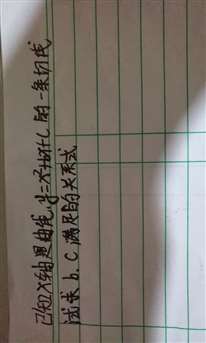 已知x轴是曲线y=x²+bx+c的一条切线
试求b、c满足的关系式